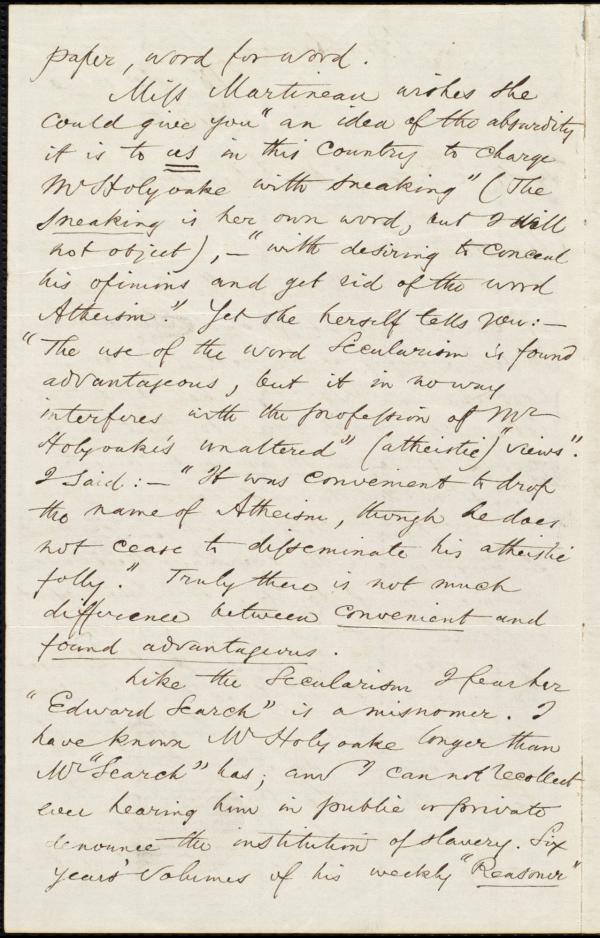 paper, word for word.
Miss Martineau wishes she
could give you "an idea of the absurdity
it is to us in this country to charge
Mr Holyoake with sneaking" (The
sneaking is her own word, but I will
not object), — "with desiring to conceal
his opinions and get rid of the word
Atheism." Yet she herself tells you: —
"The use of the word Secularism is found
advantageous, but it in no way
interferes with the profession of Mr
Holyoake's unaltered" (atheistic) "views".
I said: — "It was convenient to drop
the name of Atheism, though he does
not cease to disseminate his atheistic
folly." Truly there is not much
difference between convenient and
found advantageous.
Like the Secularism I fear her
"Edward Search" is a misnomer. I
have known Mr Holyoake longer than
Mr "Search" has; and I can not recollect
ever hearing him in public or private
denounce the institution of slavery. Six
years' volumes of his weekly "Reasoner"